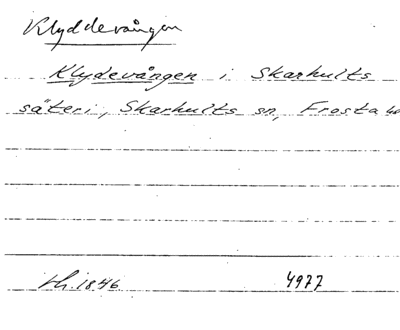 Klyddevången
Klydevången i Skarhults
säteri, Skarhults sn, Frosta hd
lh. 1846 4977